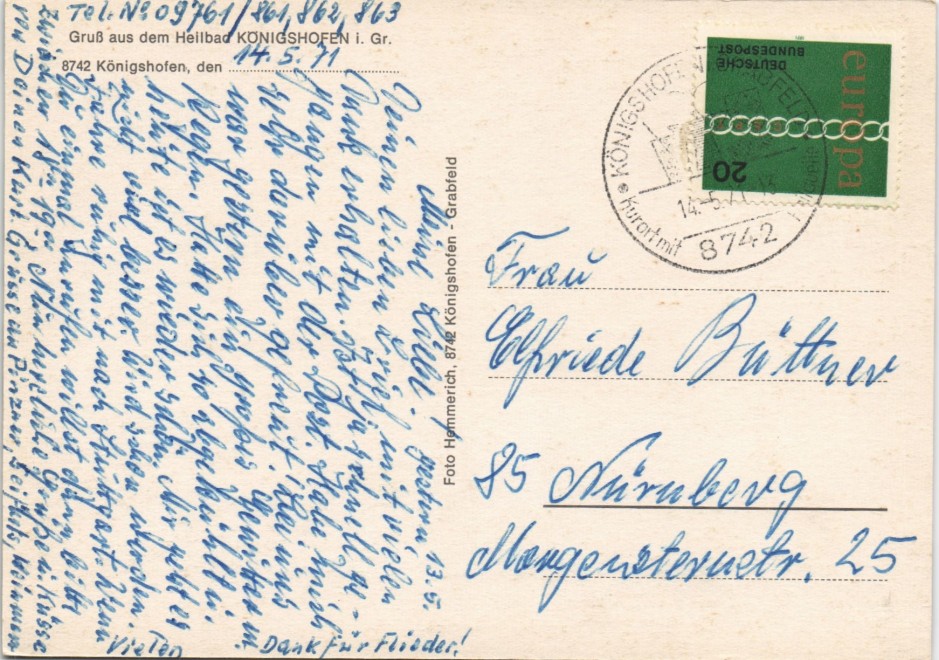 Tel. No 09761/861, 862, 863
Gruß aus dem Heilbad KÖNIGSHOFEN i. Gr.
8742 Königshofen, den 14.5.71
Meine Lilli! gestern 13.5.
Deinen lieben Brief mit vielen
Dank erhalten.
gangen mit der Post. Habe mich
sehr darüber gefreut. Bei uns
war gestern ein großes Gewitter m
Regen. Hatte sich so abgekühlt.
Heute ist es wieder schön. Mir geht es
nicht viel besser wird schon werden.
Fahre ruhig mit nach Stuttgart. Wenn
Du einmal anrufen willst dann bitte
zwischen 18 - 19 Nun herzliche Grüße u. Küsse
von Deiner Kuni. Grüsse an
Vielen Dank für Flieder!
Foto Hemmerich, 8742 Königshofen - Grabfeld
DEUTSCHE
BUNDESPOST
europa
20
KÖNIGSHOFEN
14.-5.71
Kurort mit
8742
Frau
Elfriede Büttner
85 Nürnberg
Morgensternstr. 25